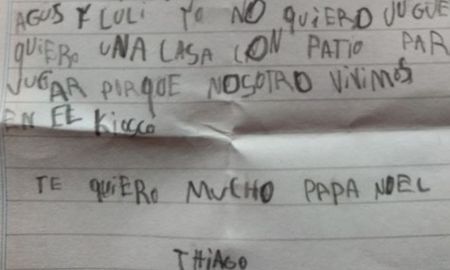 AGUS Y LULI YO NO QUIERO JUGUE
QUIERO UNA CASA CON PATIO PAR
JUGAR PORQUE NOSOTRO VIVIMOS
EN EL KIOSCO
TE QUIERO MUCHO PAPA NOEL
THIAGO